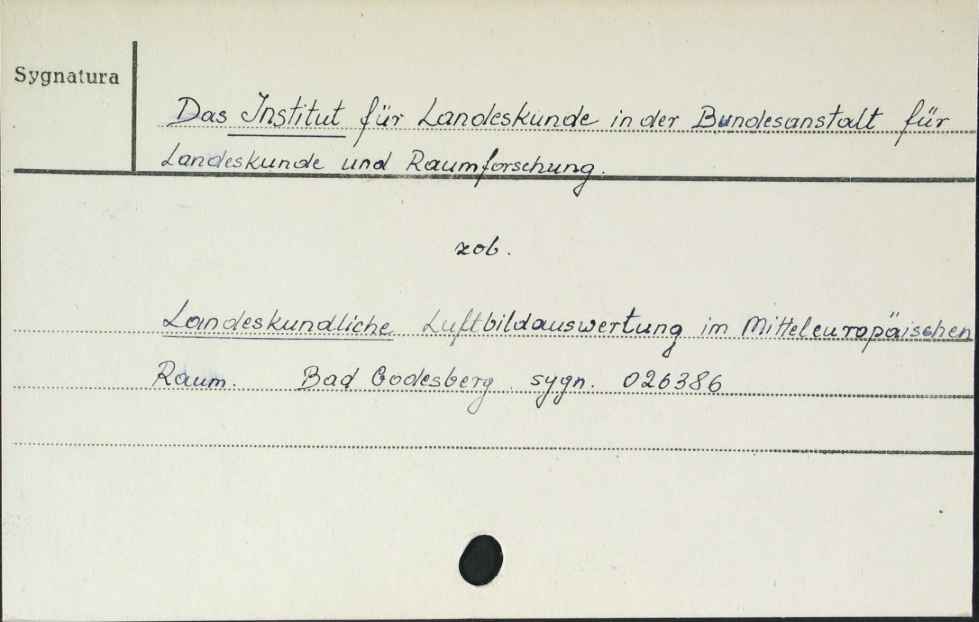 Sygnatura
Das Institut für Landeskunde in der Bundesanstalt für
Landeskunde und Raumforschung.
zob.
Landeskundliche Luftbildauswertung im Mitteleuropäischen
Raum. Bad Godesberg. sygn. 026386